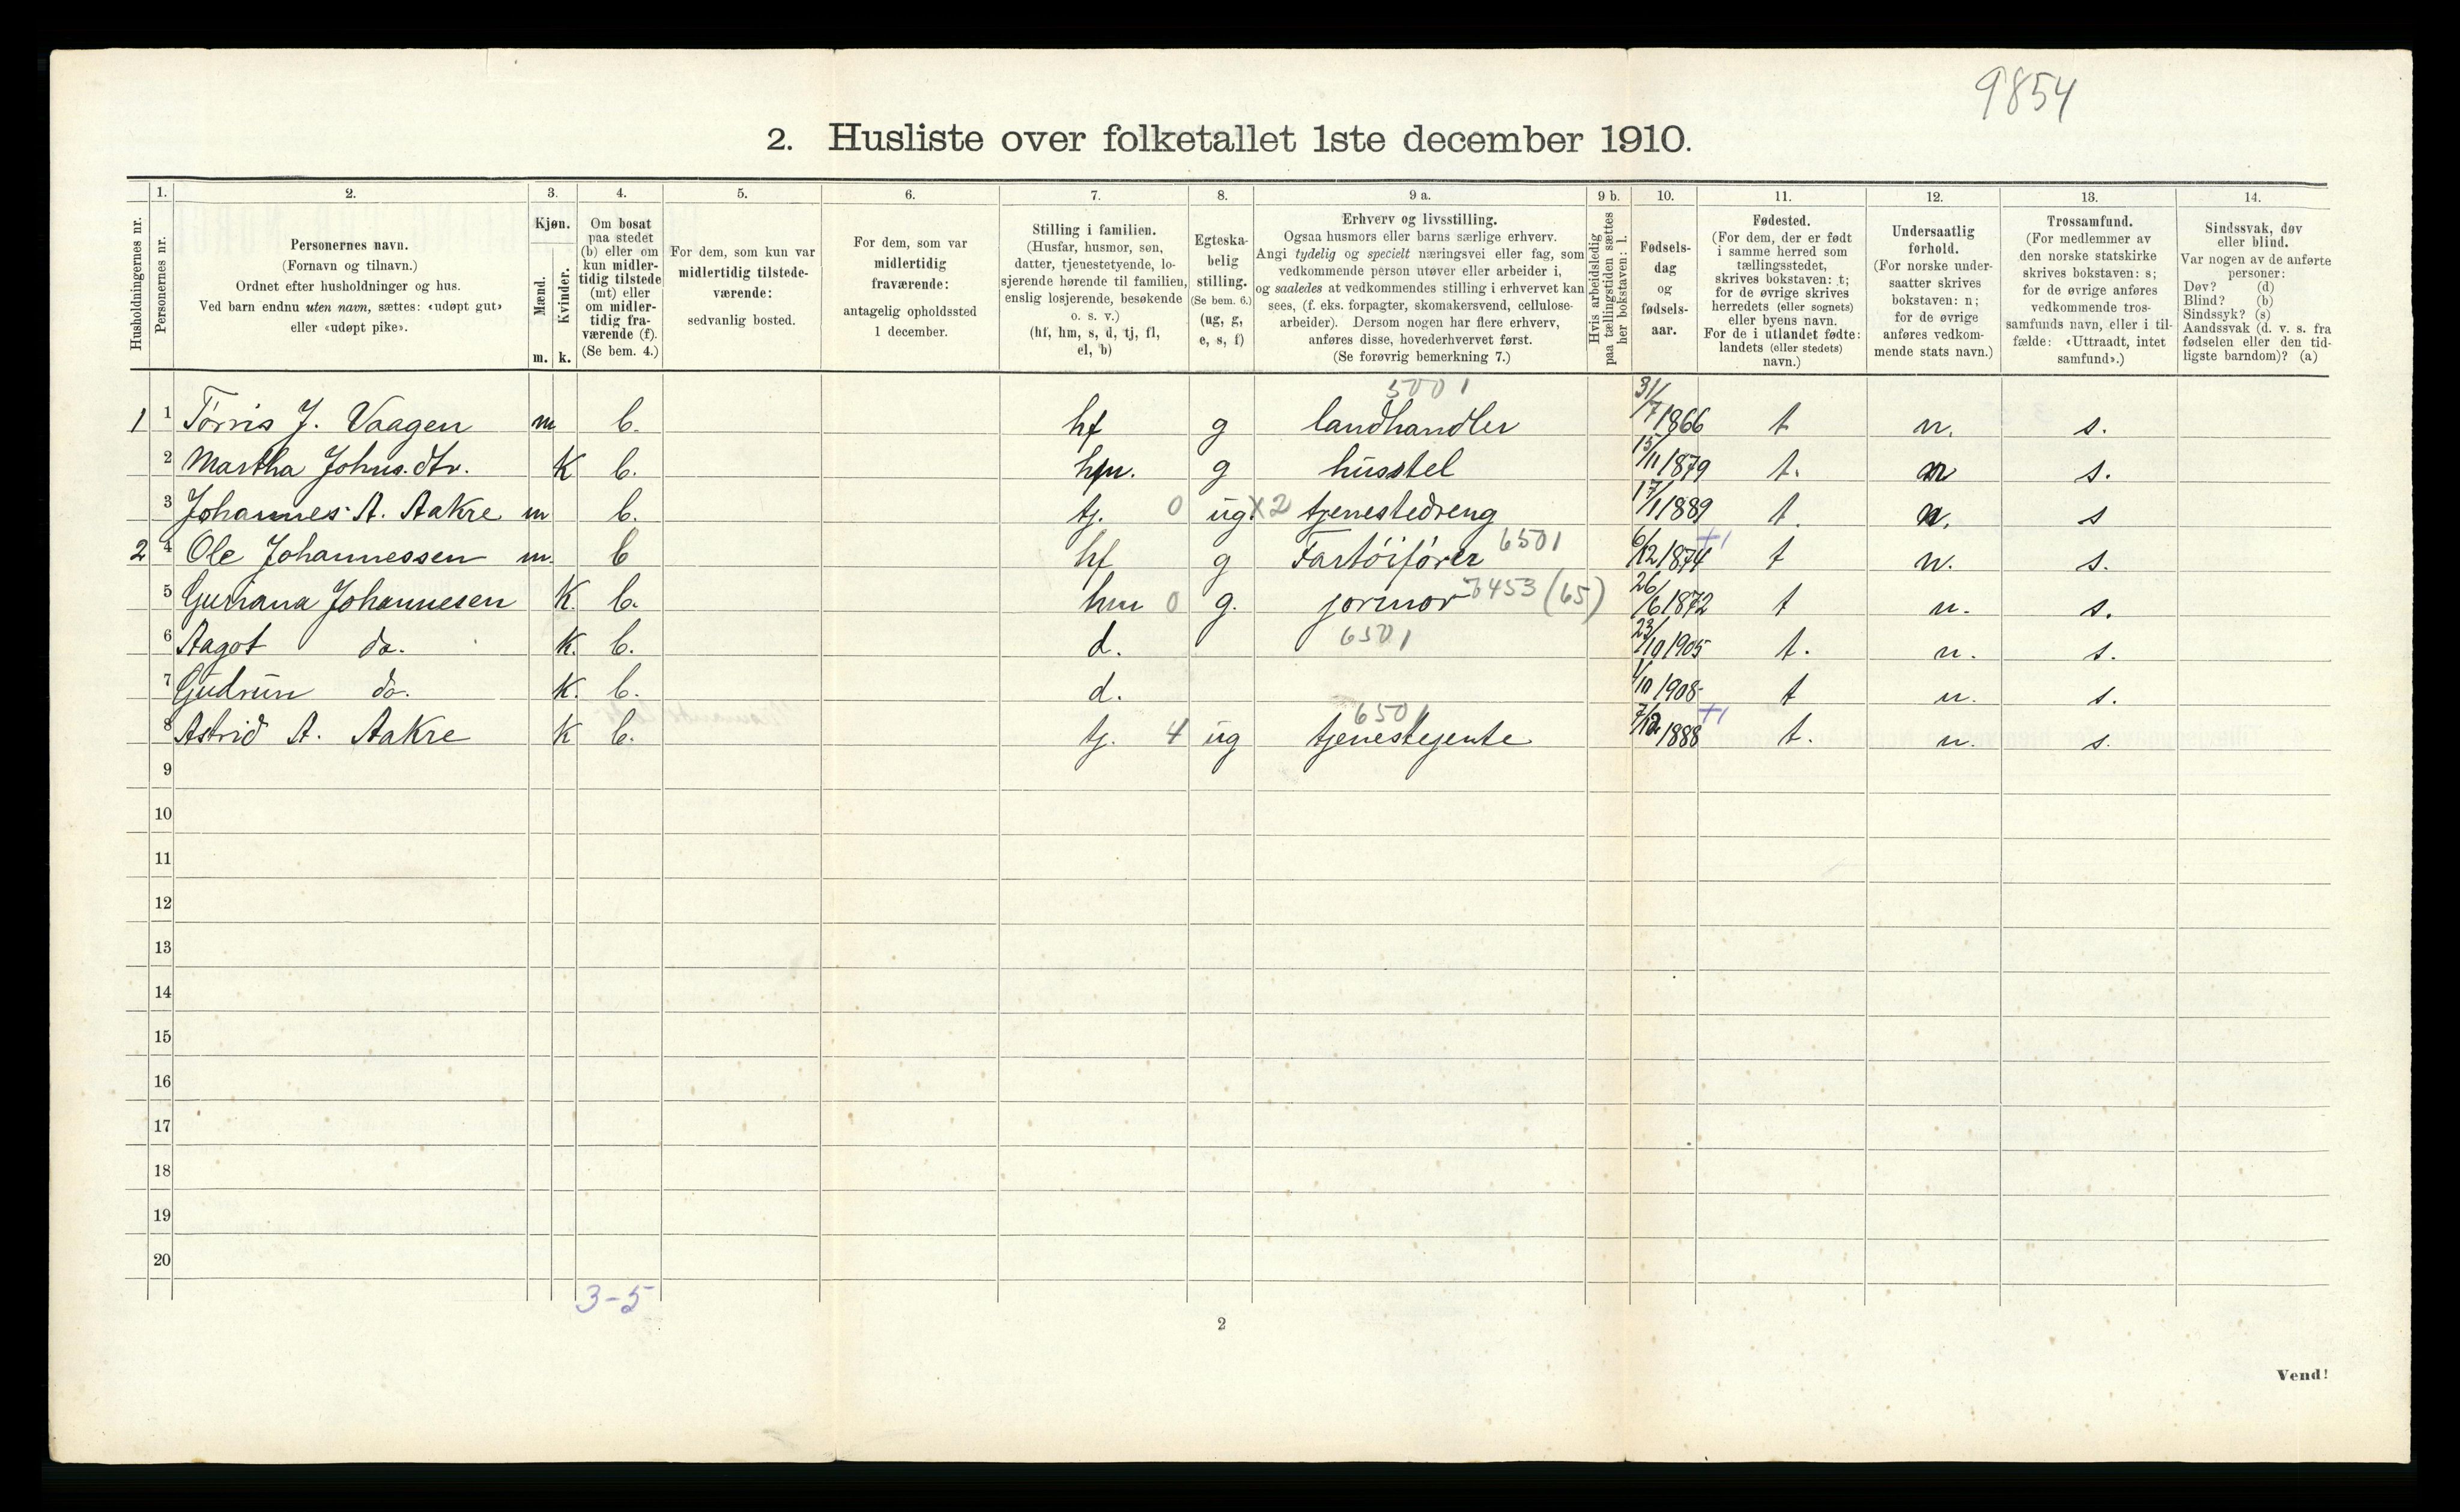 9854
2. Husliste over folketallet 1ste december 1910.
Husholdningernes nr.
1.
Personernes nr.
2.
Personernes navn.
(Fornavn og tilnavn.)
Ordnet efter husholdninger og hus.
Ved barn endnu uten navn, sættes: «udøpt gut»
eller «udøpt pike».
3.
Kjøn.
Mænd.
Kvinder.
m. k.
4.
Om bosat
paa stedet
(b) eller om
kun midler-
tidig tilstede
(mt) eller
om midler-
tidig fra-
værende (f).
(Se bem. 4.)
5.
For dem, som kun var
midlertidig tilstede-
værende:
sedvanlig bosted.
6.
For dem, som var
midlertidig
fraværende:
antagelig opholdssted
1 december.
7.
Stilling i familien.
(Husfar, husmor, søn,
datter, tjenestetyende, lo-
sjerende hørende til familien,
enslig losjerende, besøkende
o. s. v.)
(hf, hm, s, d, tj, fl,
el, b)
8.
Egteska-
belig
stilling.
(Se bem. 6.)
(ug, g,
e, s, f)
9 a.
Erhverv og livsstilling.
Ogsaa husmors eller barns særlige erhverv.
Angi tydelig og specielt næringsvei eller fag, som
vedkommende person utøver eller arbeider i,
og saaledes at vedkommendes stilling i erhvervet kan
sees, (f. eks. forpagter, skomakersvend, cellulose-
arbeider). Dersom nogen har flere erhverv,
anføres disse, hovederhvervet først.
(Se forøvrig bemerkning 7.)
9 b.
Hvis arbeidsledig
paa tællingstiden sættes
her bokstaven: l.
10.
Fødsels-
dag
og
fødsels-
aar.
11.
Fødested.
(For dem, der er født
i samme herred som
tællingsstedet,
skrives bokstaven: t;
for de øvrige skrives
herredets (eller sognets)
eller byens navn.
For de i utlandet fødte:
landets (eller stedets)
navn.)
12.
Undersaatlig
forhold.
(For norske under-
saatter skrives
bokstaven: n;
for de øvrige
anføres vedkom-
mende stats navn.)
13.
Trossamfund.
(For medlemmer av
den norske statskirke
skrives bokstaven: s;
for de øvrige anføres
vedkommende tros-
samfunds navn, eller i til-
fælde: «Uttraadt, intet
samfund».)
14.
Sindssvak, døv
eller blind.
Var nogen av de anførte
personer:
Døv? (d)
Blind? (b)
Sindssyk? (s)
Aandssvak (d. v. s. fra
fødselen eller den tid-
ligste barndom)? (a)
5001
1 1 Torris J. Vaagen m b. hf g landhandler 31/7 1866 t n. s.
2 Martha Johns.dtr. K b. hm. g husstel 15/11 1879 t. n s.
3 Johannes A. Aakre m b. tj. 0 ug X2 tjenestedreng 17/1 1889 t. n. s
2 4 Ole Johannessen m. b hf g Fartöiförer 6501 6/12 1874 +1 t n. s.
5 Guriana Johannesen K. b. hm 0 g. jormor 7453 (65) 26/6 1872 t n. s.
6 Aagot do. K. b. d. 6501 23/10 1905 t. n. s.
7 Gudrun do. K. b. d. 1/10 1908 t n. s.
6501
8 Astrid A. Aakre K b. tj. 4 ug tjenestejente 7/12 1888 +1 t. n. s.
9
10
11
12
13
14
15
16
17
18
19
20
3-5
2
Vend!